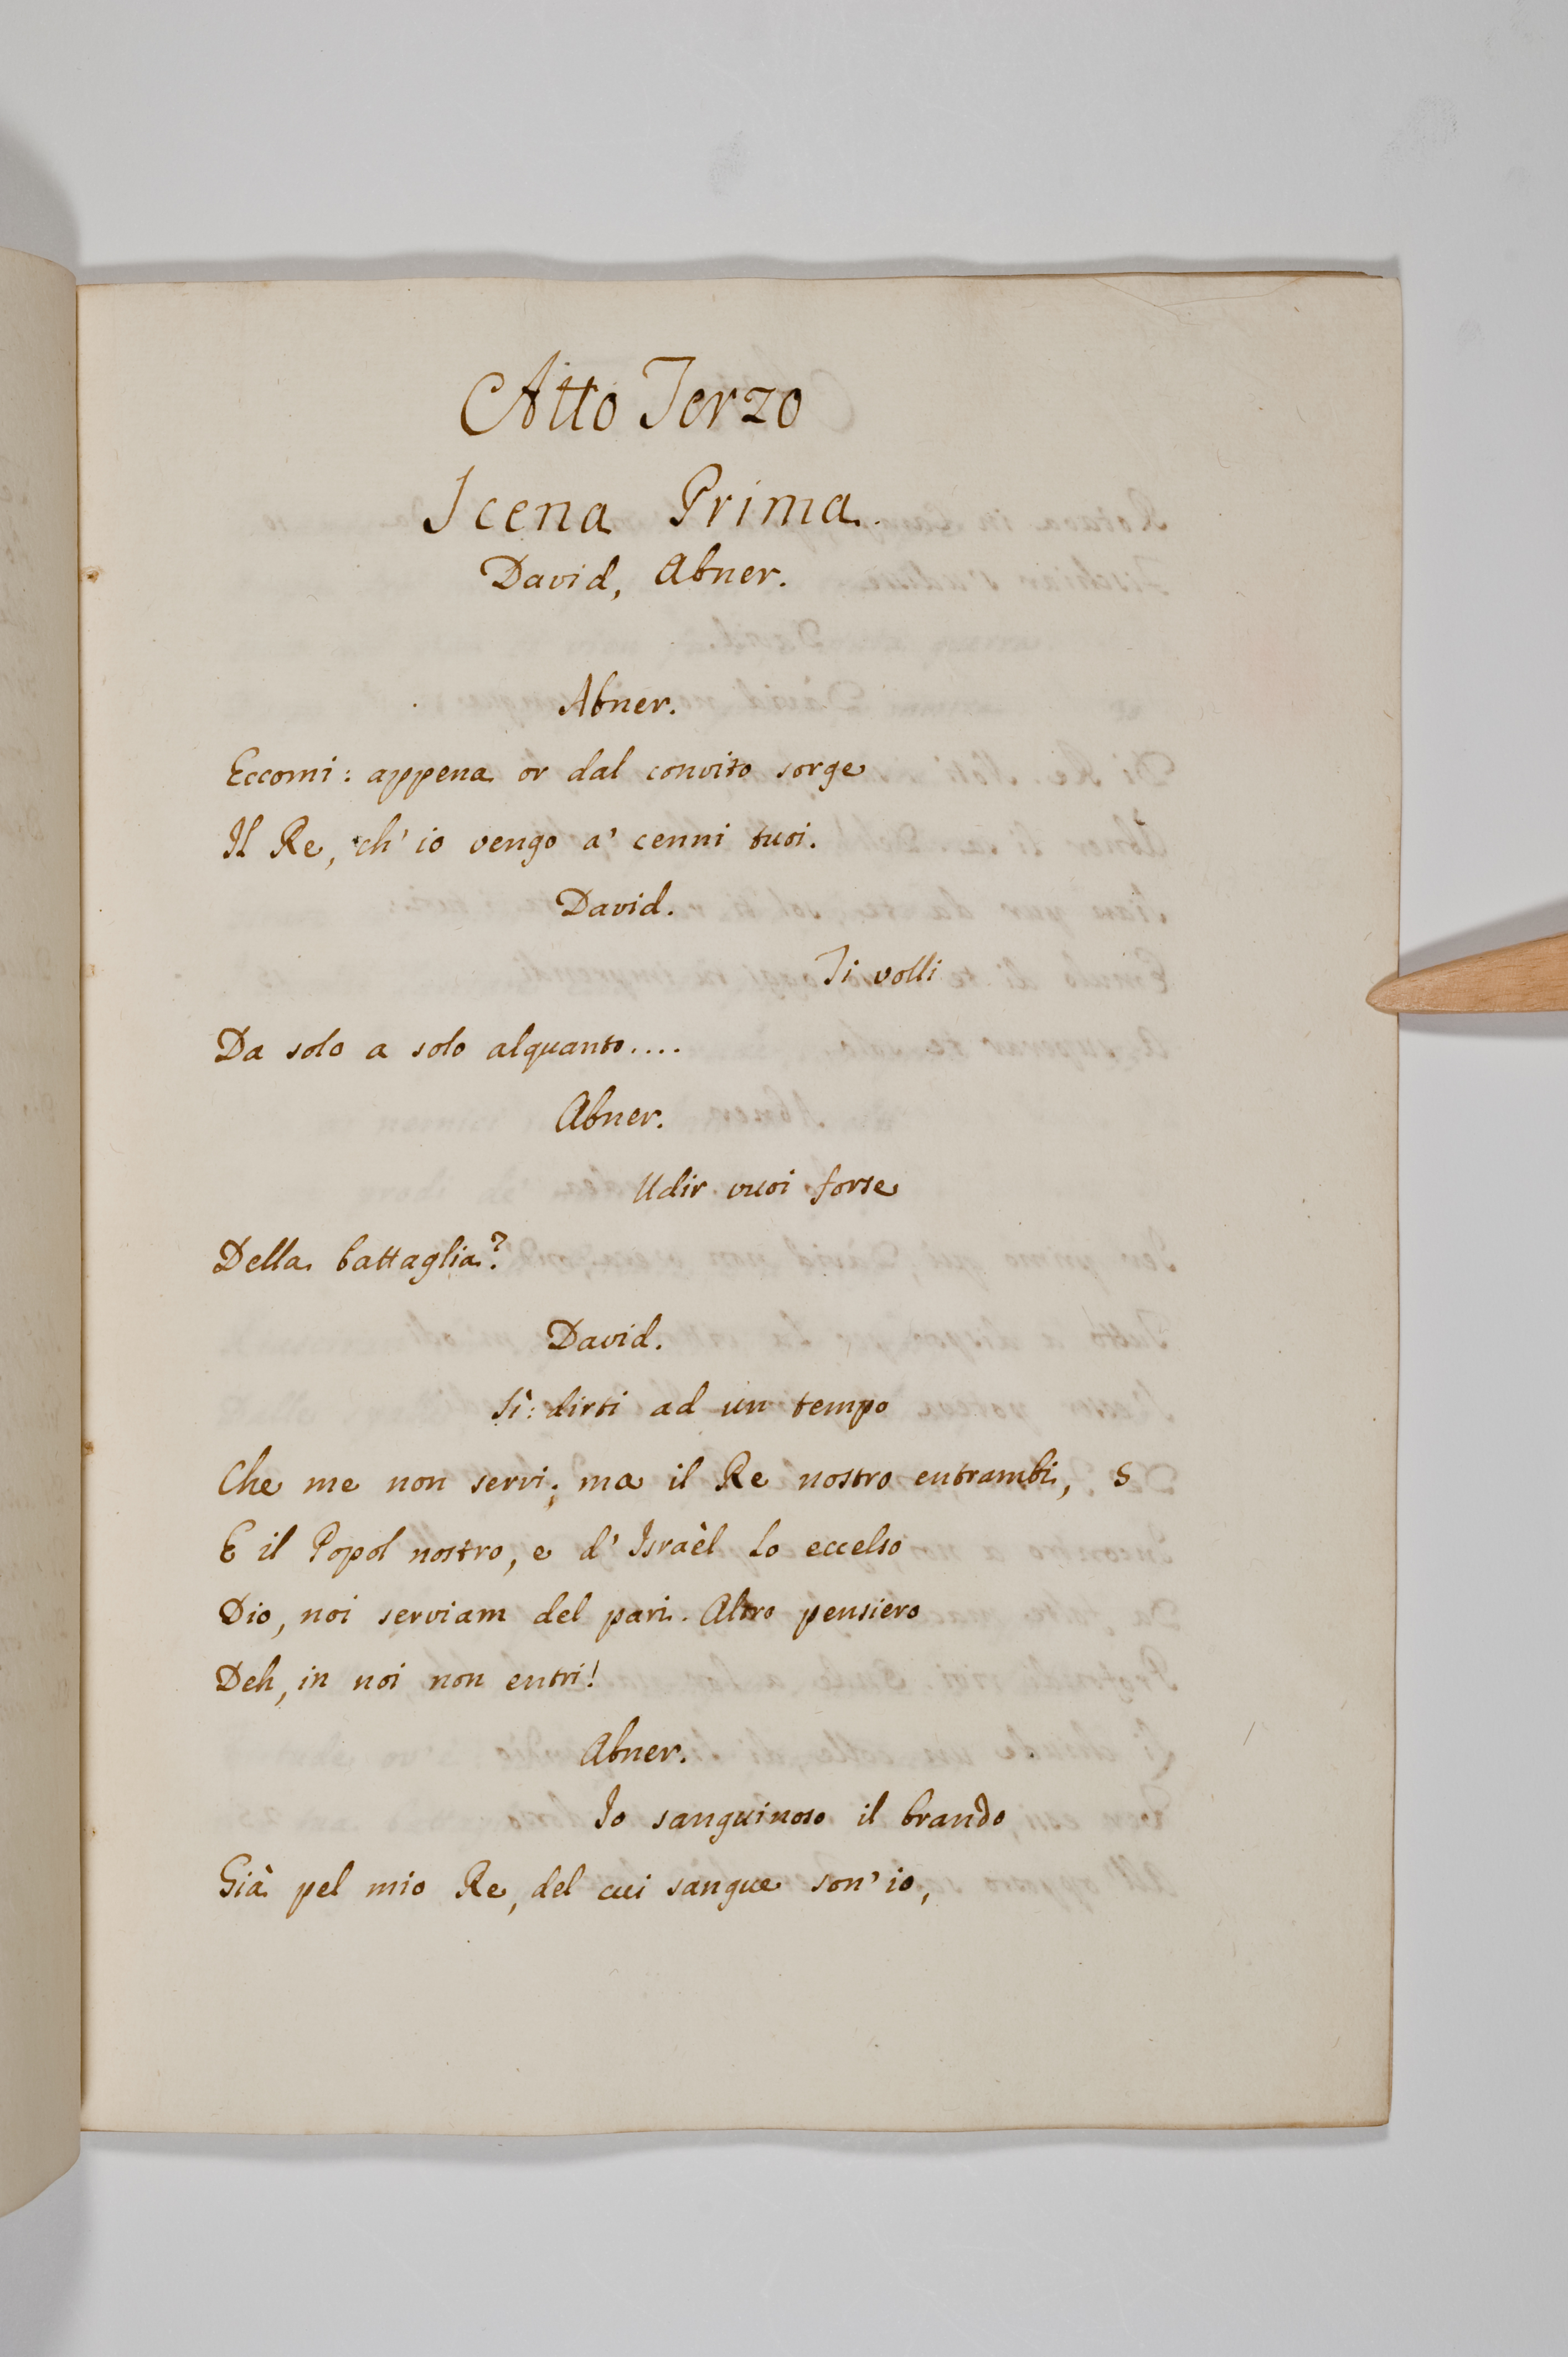 Atto Terzo
Scena Prima.
David, Abner.
Abner.
Eccomi: appena or dal convito sorge
Il Re, ch' io vengo a' cenni tuoi.
David.
Ti volli
Da solo a solo alquanto....
Abner.
Udir vuoi forse
Della battaglia?
David.
Sì: dirti ad un tempo
Che me non servi; ma il Re nostro entrambi, 5
E il Popol nostro, e d' Israèl lo eccelso
Dio, noi serviam del pari. Altro pensiero
Deh, in noi non entri!
Abner.
Io sanguinoso il brando
Già pel mio Re, del cui sangue son' io,